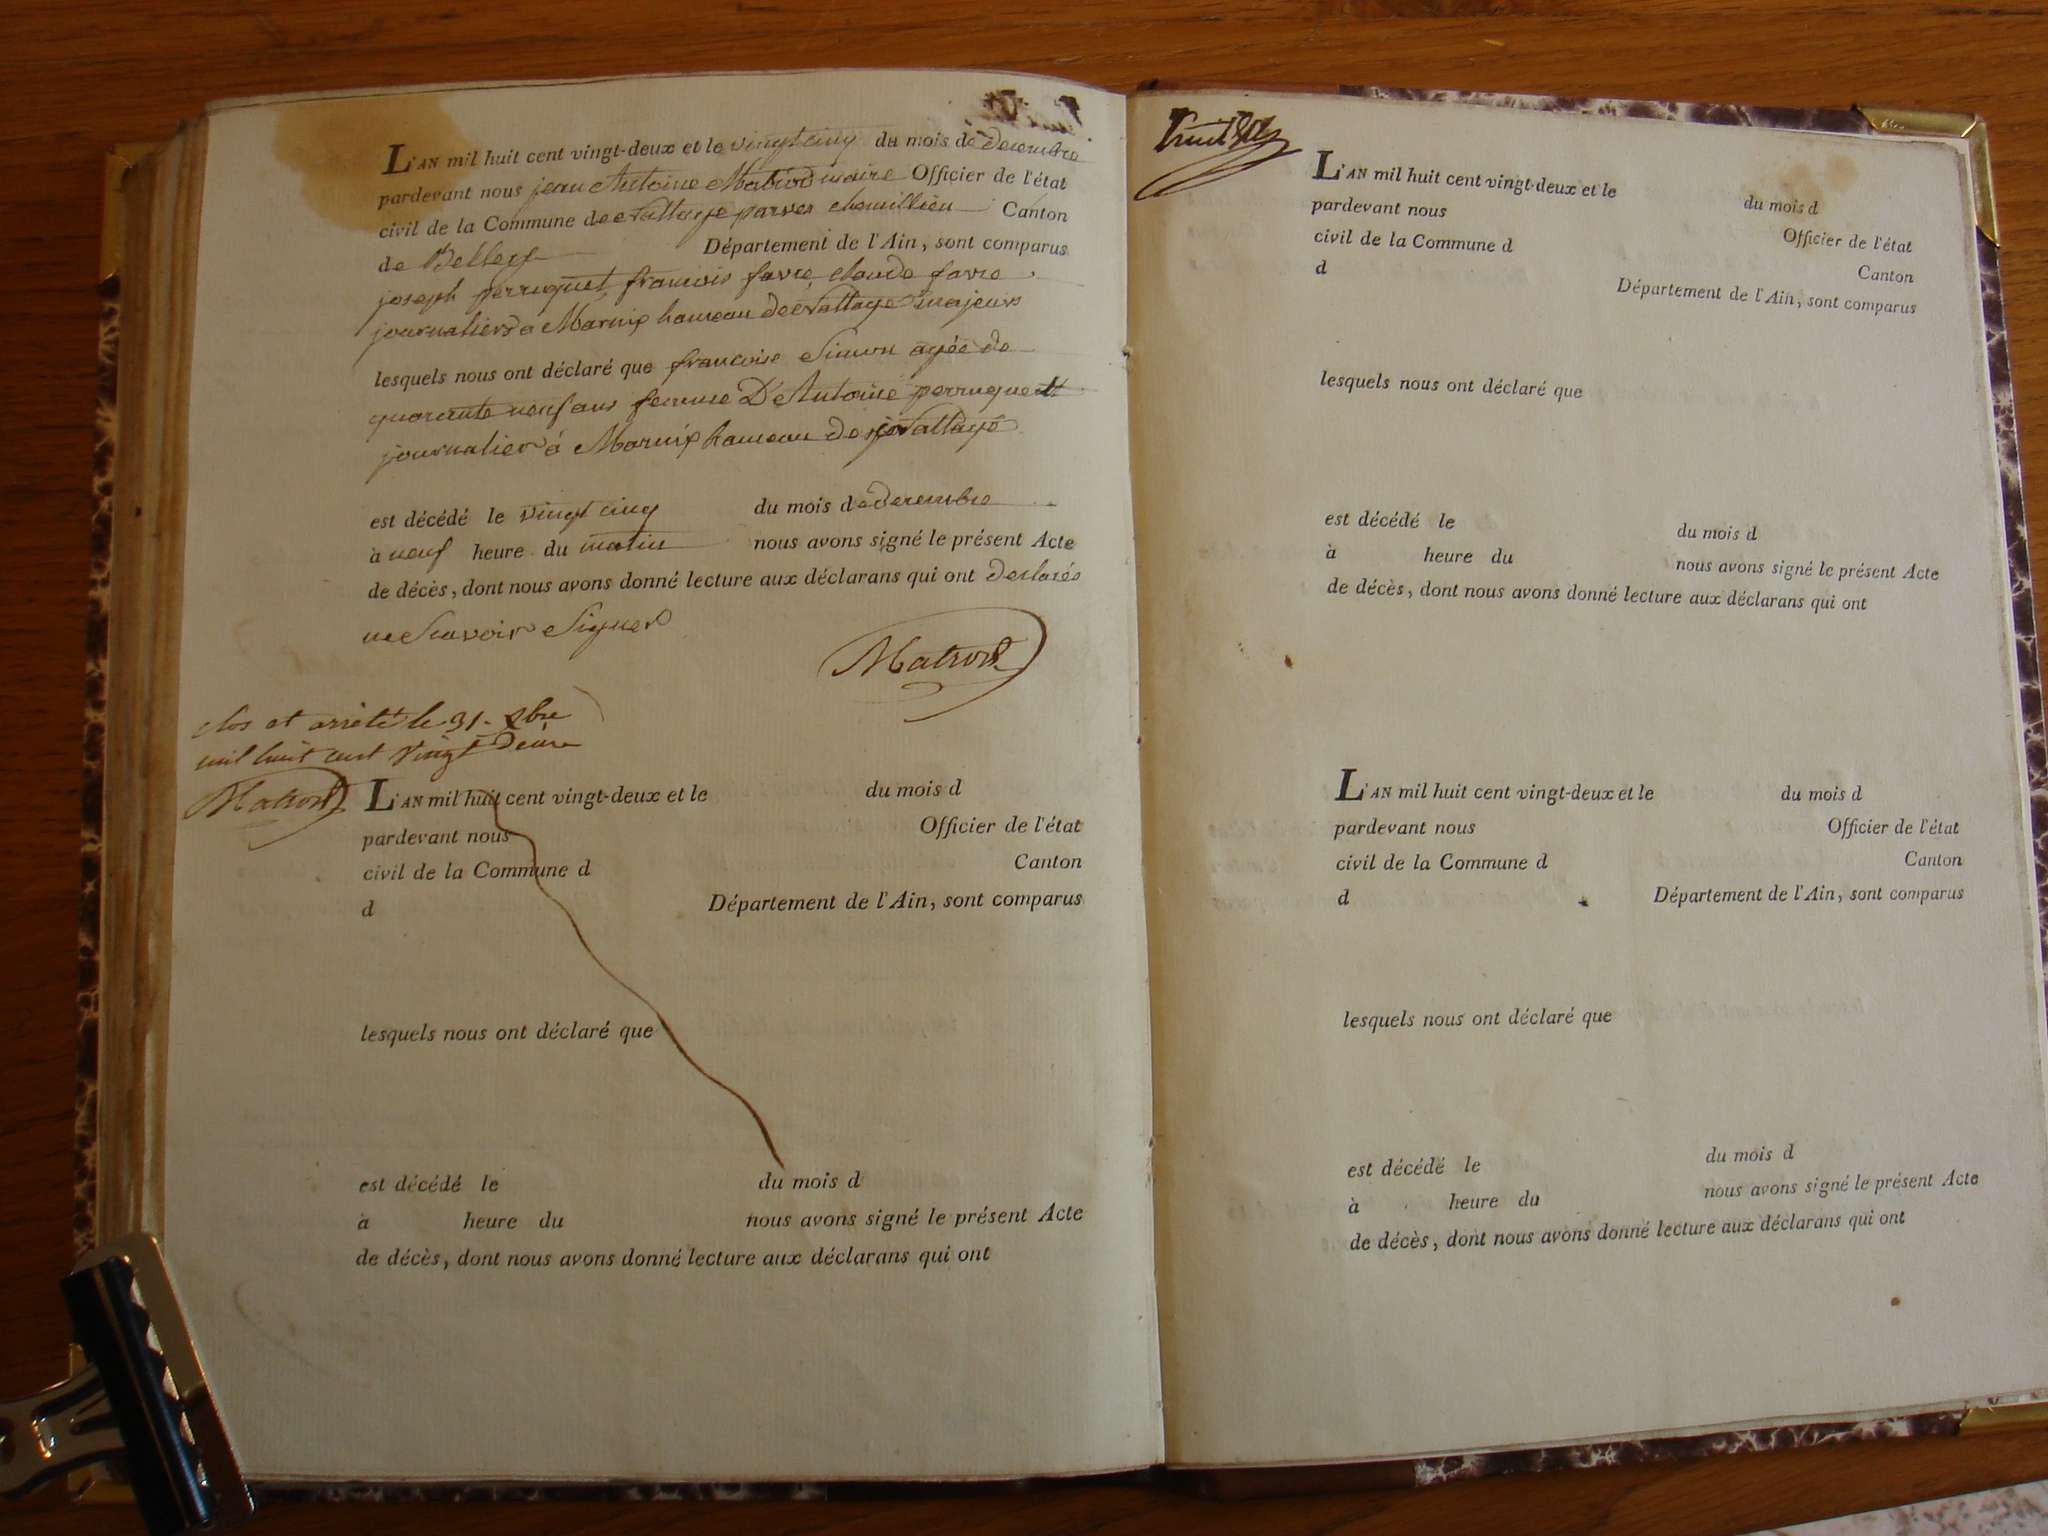 L'AN mil huit cent vingt-deux et le vingt cinq du mois de decembre
pardevant nous jean Antoine Matrod maire Officier de l'état
civil de la Commune de parves Canton
de Belley Département de l'Ain, sont comparus
joseph perruquet, francois favre, claude favre
journaliers a Marnix hameau de majeurs
lesquels nous ont déclaré que francoise Simon agée de
quarante neuf ans femme D'Antoine perruquet
journalier á Marnix hameau de
est décédé le vingt cinq du mois de decembre
à neuf heure du matin nous avons signé le présent Acte
de décès, dont nous avons donné lecture aux déclarans qui ont declarés
ne Scavoir Signer
Matrod
clos et arrêté le 31. Xbre
mil huit cent vingt Deux
Matrod
L'AN mil huit cent vingt-deux et le du mois d
pardevant nous Officier de l'état
civil de la Commune d Canton
d Département de l'Ain, sont comparus
lesquels nous ont déclaré que
est décédé le du mois d
à heure du nous avons signé le présent Acte
de décès, dont nous avons donné lecture aux déclarans qui ont
L'AN mil huit cent vingt-deux et le du mois d
pardevant nous Officier de l'état
civil de la Commune d Canton
d Département de l'Ain, sont comparus
lesquels nous ont déclaré que
est décédé le du mois d
à heure du nous avons signé le présent Acte
de décès, dont nous avons donné lecture aux déclarans qui ont
L'AN mil huit cent vingt-deux et le du mois d
pardevant nous Officier de l'état
civil de la Commune d Canton
d Département de l'Ain, sont comparus
lesquels nous ont déclaré que
est décédé le du mois d
à heure du nous avons signé le présent Acte
de décès, dont nous avons donné lecture aux déclarans qui ont